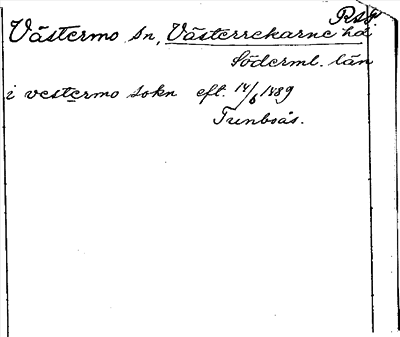 Västermo sn, Västerrekarne hd
Söderml. län
i vestermo sokn eft. 14/6 1489
Tunboås.